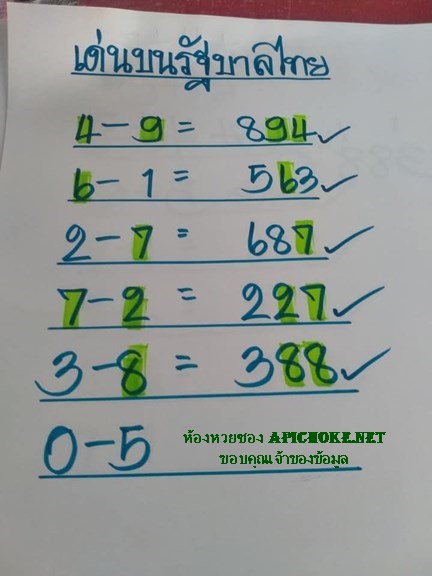 เด่นบนรัฐบาลไทย
4-9 = 894 ✓
6-1 = 563 ✓
2-7 = 687 ✓
7-2 = 227 ✓
3-8 = 388 ✓
0-5
ห้องหวยซอง APICHOKE.NET
ขอบคุณเจ้าของข้อมูล